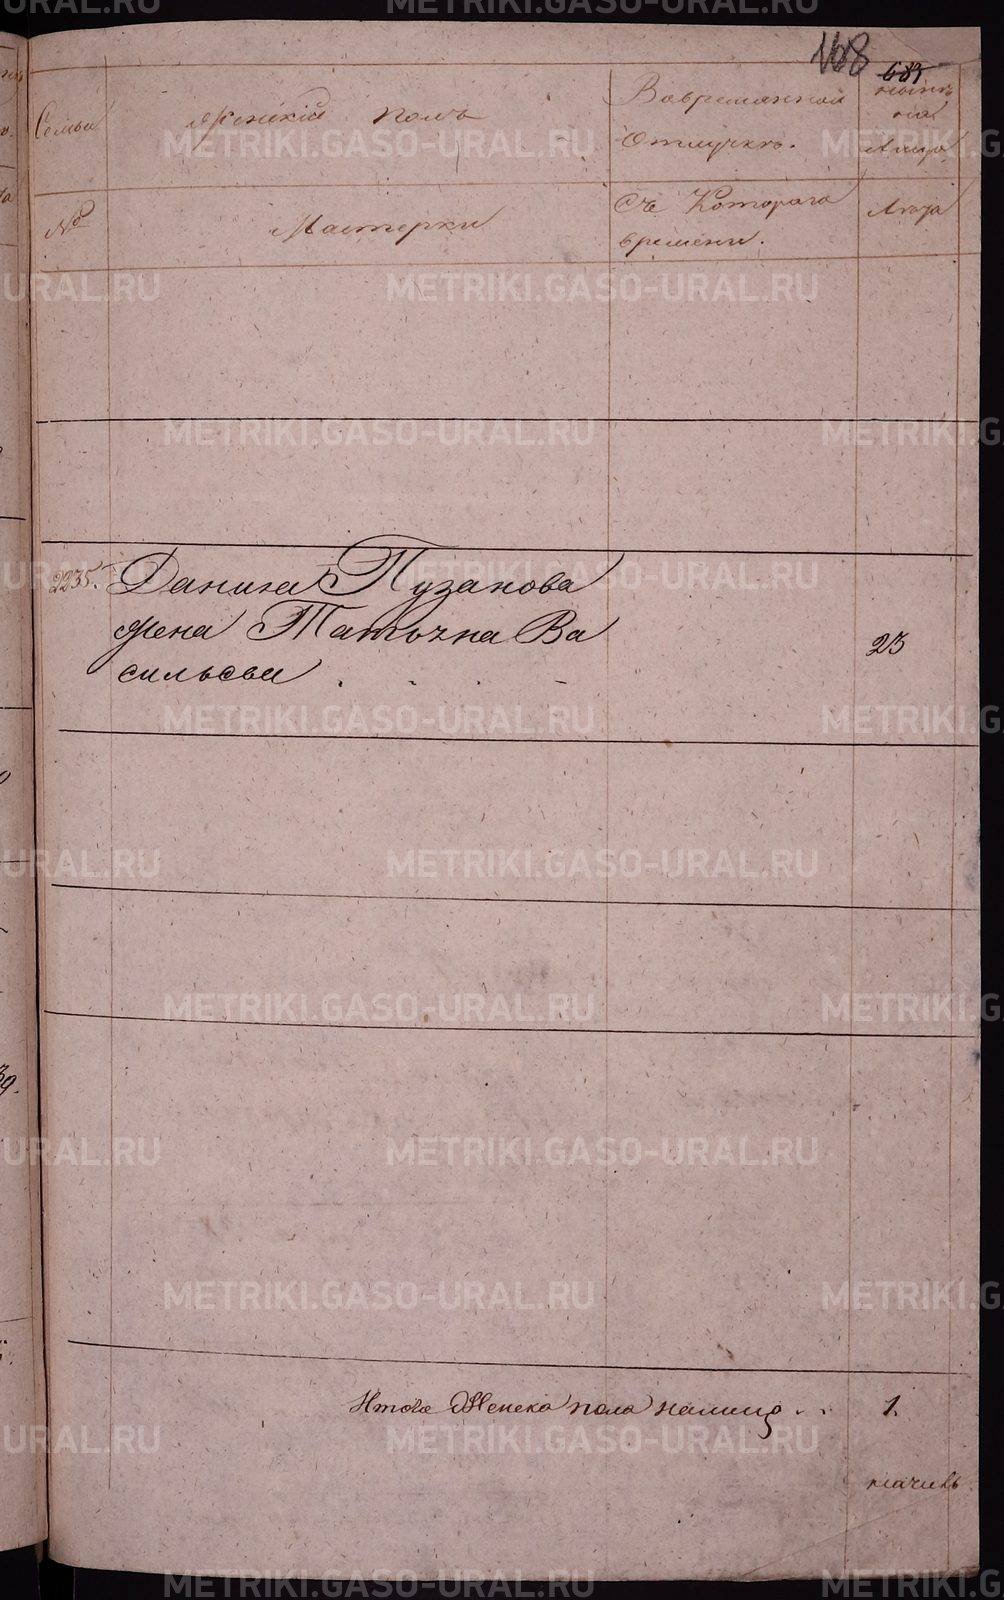 168
683
Семьи
Женскій полъ
Во временной
отлучкѣ.
нынѣ
на
лицо
№
Мастерки
Съ Котораго
времени.
Лѣта
2235.
Данила Пузанова
жена Татьяна Ва
сильева
23
Итого Женска пола налицо
1.
METRIKI.GASO-URAL.RU